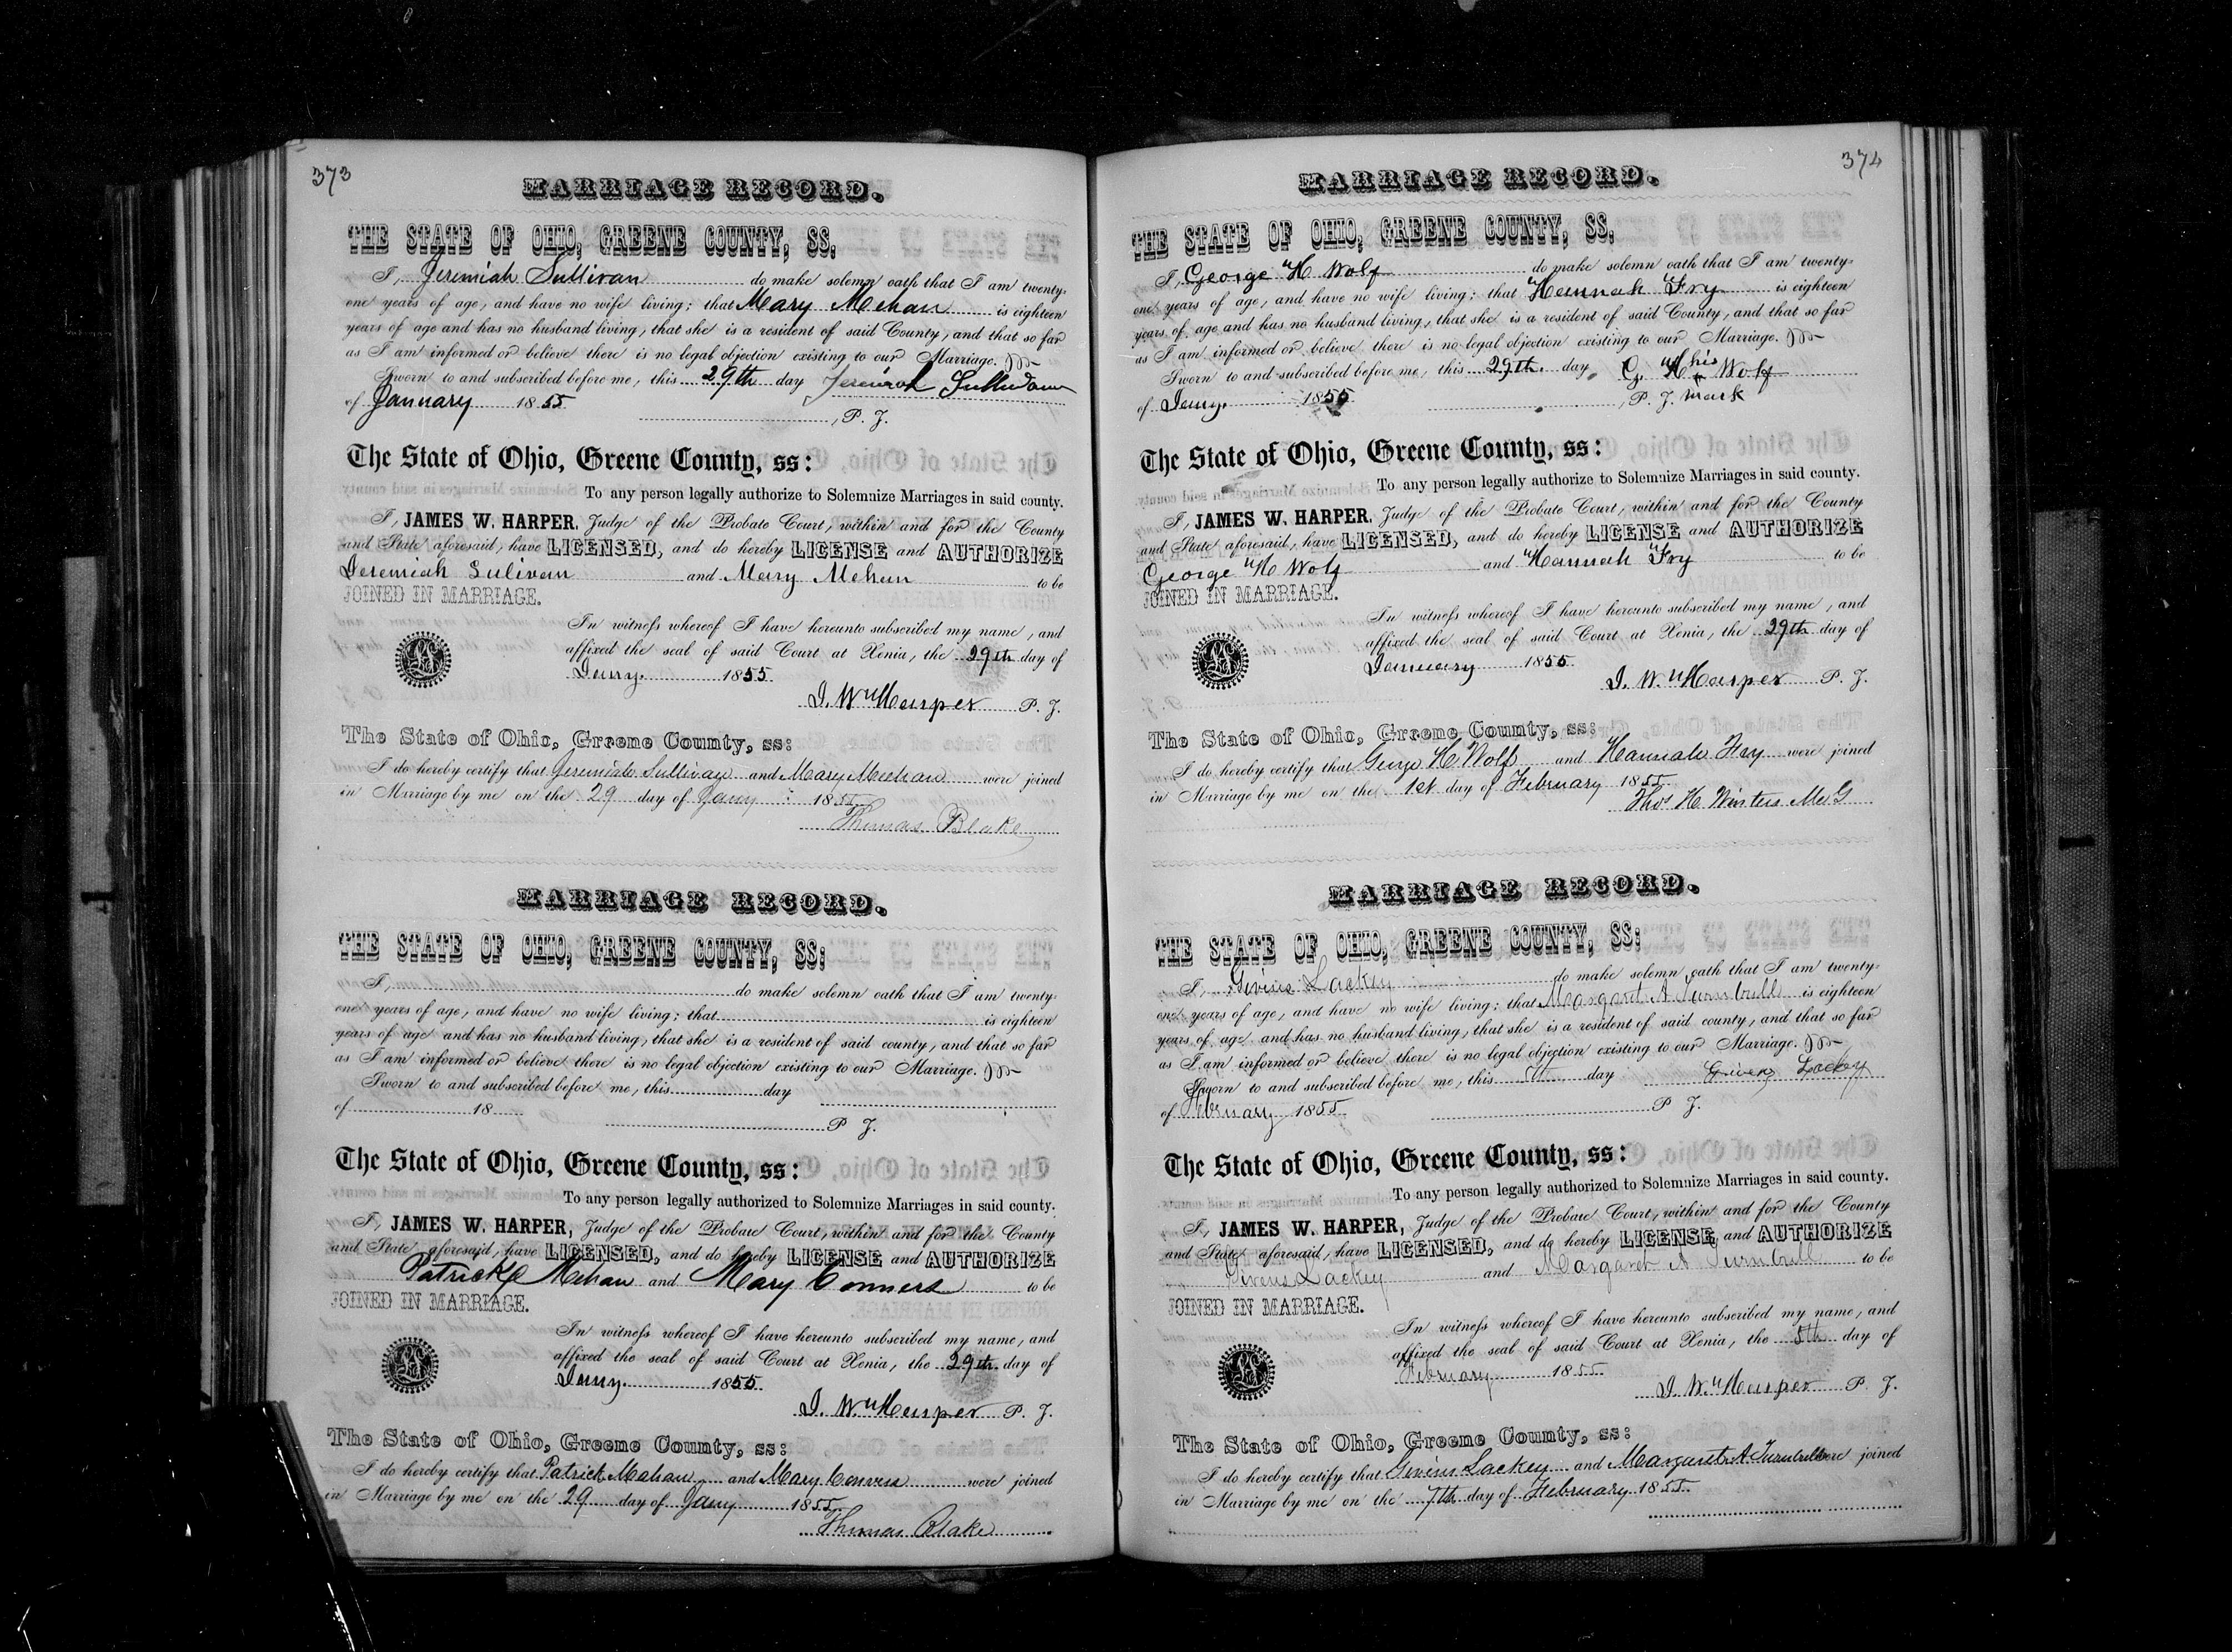 373
MARRIAGE RECORD.
THE STATE OF OHIO, GREENE COUNTY, SS,
I, Jeremiah Sullivan do make solemn oath that I am twenty-
one years of age, and have no wife living; that Mary Mehan is eighteen
years of age and has no husband living, that she is a resident of said County, and that so far
as I am informed or believe there is no legal objection existing to our Marriage.
Sworn to and subscribed before me, this 29th day Jeremiah Sullivan
of January 1855
, P. J.
The State of Ohio, Greene County, ss:
To any person legally authorize to Solemnize Marriages in said county.
I, JAMES W. HARPER, Judge of the Probate Court, within and for the County
and State aforesaid, have LICENSED, and do hereby LICENSE and AUTHORIZE
Jeremiah Sulivan and Mary Mehan to be
JOINED IN MARRIAGE.
In witness whereof I have hereunto subscribed my name, and
affixed the seal of said Court at Xenia, the 29th day of
Jany. 1855
J. W. Harper P. J.
The State of Ohio, Greene County, ss:
I do hereby certify that Jeremiah Sullivan and Mary Meehan were joined
in Marriage by me on the 29 day of Jany 1855
Thomas Blake
MARRIAGE RECORD.
THE STATE OF OHIO, GREENE COUNTY, SS;
I, do make solemn oath that I am twenty-
one years of age, and have no wife living; that is eighteen
years of age and has no husband living, that she is a resident of said county, and that so far
as I am informed or believe there is no legal objection existing to our Marriage.
Sworn to and subscribed before me, this day
of 18
P J.
The State of Ohio, Greene County, ss:
To any person legally authorized to Solemnize Marriages in said county.
I, JAMES W. HARPER, Judge of the Probate Court, within and for the County
and State aforesaid, have LICENSED, and do hereby LICENSE and AUTHORIZE
Patrick Mehan and Mary Conners to be
JOINED IN MARRIAGE.
In witness whereof I have hereunto subscribed my name, and
affixed the seal of said Court at Xenia, the 29th day of
Jany. 1855
J. W. Harper P. J.
The State of Ohio, Greene County, ss:
I do hereby certify that Patrick Mehan and Mary Conners were joined
in Marriage by me on the 29 day of Jany 1855
Thomas Blake
374
MARRIAGE RECORD.
THE STATE OF OHIO, GREENE COUNTY, SS,
I, George H Wolf do make solemn oath that I am twenty-
one years of age, and have no wife living; that Hannah Fry is eighteen
years of age and has no husband living, that she is a resident of said County, and that so far
as I am informed or believe there is no legal objection existing to our Marriage.
Sworn to and subscribed before me, this 29th day G. H his Wolf
of Jany. 1855 , P. J. mark
The State of Ohio, Greene County, ss:
To any person legally authorize to Solemnize Marriages in said county.
I, JAMES W. HARPER, Judge of the Probate Court, within and for the County
and State aforesaid, have LICENSED, and do hereby LICENSE and AUTHORIZE
George H Wolf and Hannah Fry to be
JOINED IN MARRIAGE.
In witness whereof I have hereunto subscribed my name, and
affixed the seal of said Court at Xenia, the 29th day of
January 1855
J. W. Harper P. J.
The State of Ohio, Greene County, ss:
I do hereby certify that George H Wolf and Hannah Fry were joined
in Marriage by me on the 1st day of February 1855
Thos H. Winters M.G
MARRIAGE RECORD.
THE STATE OF OHIO, GREENE COUNTY, SS;
I, Givins Lackey do make solemn oath that I am twenty-
one years of age, and have no wife living; that Margaret A Turnbull is eighteen
years of age and has no husband living, that she is a resident of said county, and that so far
as I am informed or believe there is no legal objection existing to our Marriage.
Sworn to and subscribed before me, this day Givens Lackey
of February 1855
P J.
The State of Ohio, Greene County, ss:
To any person legally authorized to Solemnize Marriages in said county.
I, JAMES W. HARPER, Judge of the Probate Court, within and for the County
and State aforesaid, have LICENSED, and do hereby LICENSE and AUTHORIZE
Givens Lackey and Margaret A Turnbull to be
JOINED IN MARRIAGE.
In witness whereof I have hereunto subscribed my name, and
affixed the seal of said Court at Xenia, the 5th day of
February 1855
J. W. Harper P. J.
The State of Ohio, Greene County, ss:
I do hereby certify that Givins Lackey and Margaret A Turnbull were joined
in Marriage by me on the 7th day of February 1855